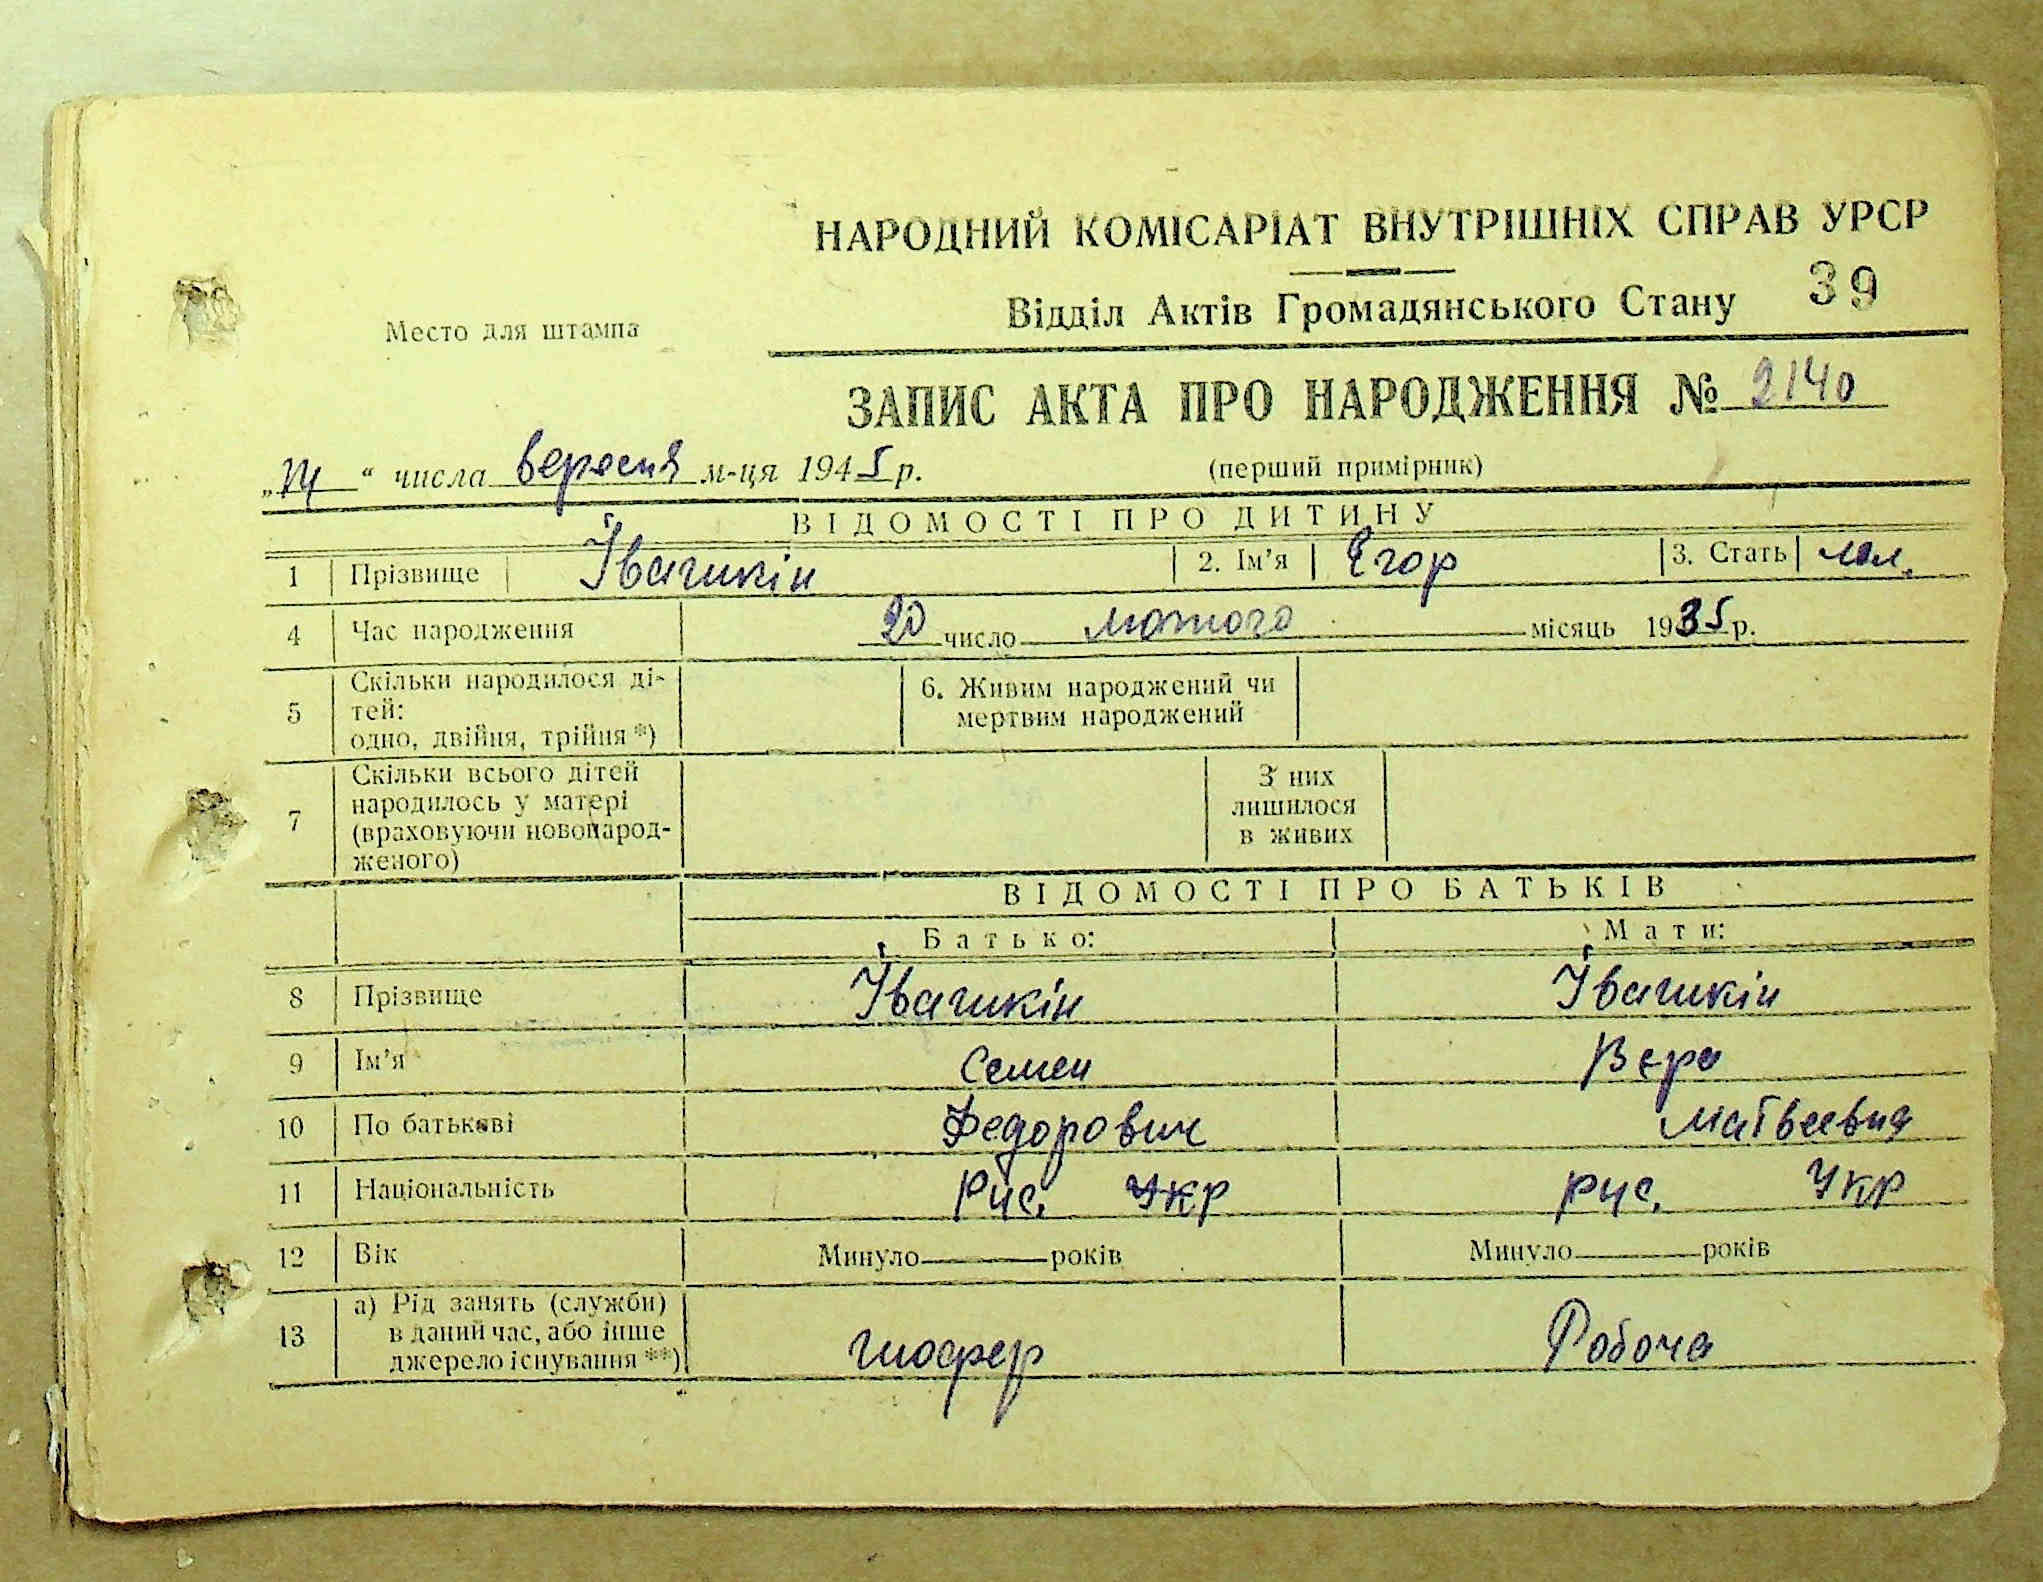 НАРОДНИЙ КОМІСАРІАТ ВНУТРІШНІХ СПРАВ УРСР
Відділ Актів Громадянського Стану 39
Место для штампа
ЗАПИС АКТА ПРО НАРОДЖЕННЯ № 2140
„14“ числа вересня м-ця 1945 р. (перший примірник)
ВІДОМОСТІ ПРО ДИТИНУ
1 Прізвище Івашкін 2. Ім'я Єгор 3. Стать чол.
4 Час народження 20 число лютого місяць 1935 р.
5 Скільки народилося ді-
тей:
одно, двійня, трійня *)
6. Живим народжений чи
мертвим народжений
7 Скільки всього дітей
народилось у матері
(враховуючи новонарод-
женого)
З них
лишилося
в живих
ВІДОМОСТІ ПРО БАТЬКІВ
Батько: Мати:
8 Прізвище Івашкін Івашкін
9 Ім'я Семен Вєра
10 По батькові Федорович Матвеевна
11 Національність рус. Укр рус. Укр
12 Вік Минуло років Минуло років
13 а) Рід занять (служби)
в даний час, або інше
джерело існування **)
шофер Робоча